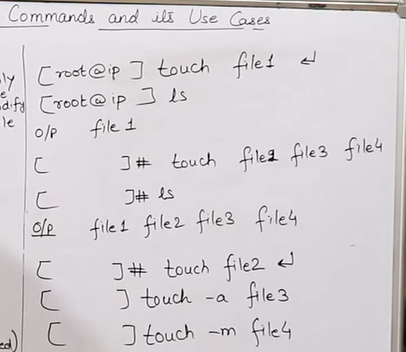 Commands and its Use Cases
[root@ip ] touch file1 ↵
[root@ip ] ls
o/p file1
[ ]# touch file2 file3 file4
[ ]# ls
o/p file1 file2 file3 file4
[ ]# touch file2 ↵
[ ] touch -a file3
[ ] touch -m file4